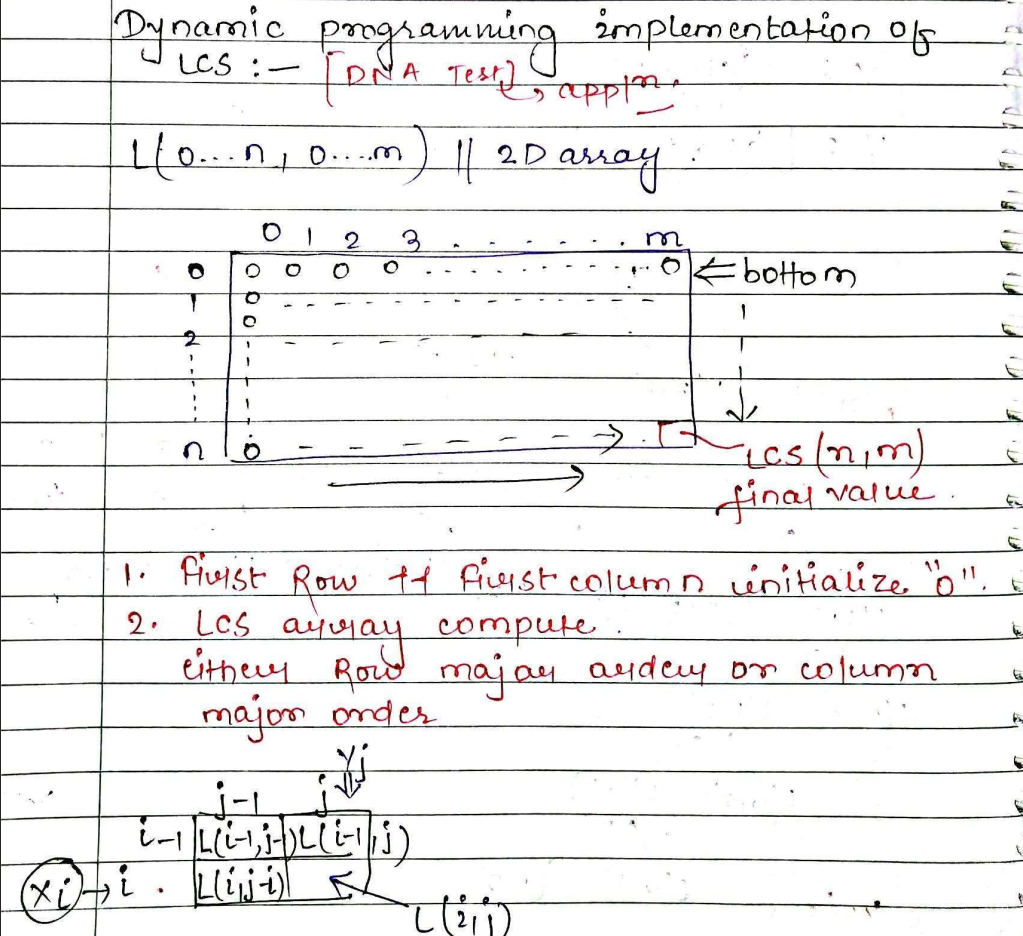 Dynamic programming implementation of
LCS :- [DNA Test] → appln.
L(0...n, 0....m) || 2D array.
0 1 2 3 . . . . . . . m
0 0 0 0 0 . . . . . . . . . . . 0 ⇐ bottom
1 0 - - - - - - - - - -
0
2 - - - - -
n 0 - - - - - - → . LCS (n, m)
final value.
1. First Row || First column initialize "0".
2. LCS array compute.
either Row major order or column
major order
Yj
j-1 j
i-1 L(i-1,j-1) L(i-1,j)
Xi → i . L(i,j-i)
L(i,j)